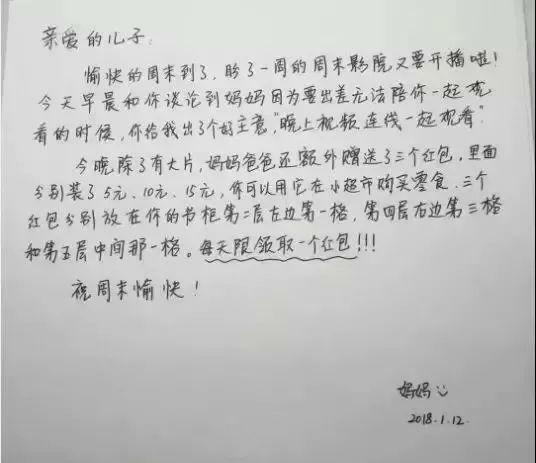 亲爱的儿子：
愉快的周末到了，盼了一周的周末影院又要开播啦！
今天早晨和你谈论到妈妈因为要出差无法陪你一起观
看的时候，你给我出了个好主意，“晚上视频连线一起观看”。
今晚除了有大片，妈妈爸爸还额外赠送了三个红包，里面
分别装了5元、10元、15元，你可以用它在小超市购买零食．三个
红包分别放在你的书柜第二层左边第一格，第四层右边第三格
和第五层中间那一格。每天限领取一个红包！！！
祝周末愉快！
妈妈
2018.1.12.